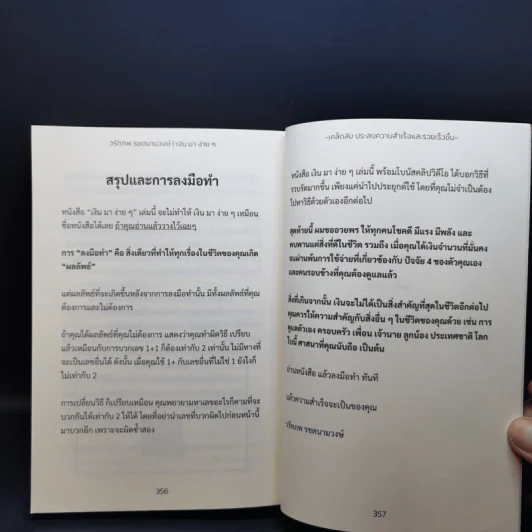 วริทภพ รชตนามวงษ์ | เงิน มา ง่าย ๆ
สรุปและการลงมือทำ
หนังสือ “เงิน มา ง่าย ๆ” เล่มนี้ จะไม่ทำให้ เงิน มา ง่าย ๆ เหมือน
ชื่อหนังสือได้เลย ถ้าคุณอ่านแล้ววางไว้เฉยๆ
การ “ลงมือทำ” คือ สิ่งเดียวที่ทำให้ทุกเรื่องในชีวิตของคุณเกิด
“ผลลัพธ์”
แต่ผลลัพธ์ที่จะเกิดขึ้นหลังจากการลงมือทำนั้น มีทั้งผลลัพธ์ที่คุณ
ต้องการและไม่ต้องการ
ถ้าคุณได้ผลลัพธ์ที่คุณไม่ต้องการ แสดงว่าคุณทำผิดวิธี เปรียบ
แล้วเหมือนกับการบวกเลข 1+1 ก็ต้องเท่ากับ 2 เท่านั้น ไม่มีทางที่
จะเป็นเลขอื่นได้ ดังนั้น เมื่อคุณใช้ 1+ กับเลขอื่นที่ไม่ใช่ 1 ยังไงก็
ไม่เท่ากับ 2
การเปลี่ยนวิธี ก็เปรียบเหมือน คุณพยายามหาเลขอะไรก็ตามที่จะ
บวกกันให้เท่ากับ 2 ให้ได้ โดยที่อย่านำเลขที่บวกผิดไปก่อนหน้านี้
มาบวกอีก เพราะจะผิดซ้ำสอง
356
-เคล็ดลับ ประสบความสำเร็จและรวยเร็วขึ้น-
หนังสือ เงิน มา ง่าย ๆ เล่มนี้ พร้อมโบนัสคลิปวิดีโอ ได้บอกวิธีที่
รวบรัดมากขึ้น เพียงแค่นำไปประยุกต์ใช้ โดยที่คุณไม่จำเป็นต้อง
ไปหาวิธีด้วยตัวเองอีกต่อไป
สุดท้ายนี้ ผมขออวยพร ให้ทุกคนโชคดี มีแรง มีพลัง และ
พบพานแต่สิ่งที่ดีในชีวิต รวมถึง เมื่อคุณได้เงินจำนวนที่มั่นคง
จนผ่านพ้นการใช้จ่ายที่เกี่ยวข้องกับ ปัจจัย 4 ของตัวคุณเอง
และคนรอบข้างที่คุณต้องดูแลแล้ว
สิ่งที่เกิดจากนั้น เงินจะไม่ได้เป็นสิ่งสำคัญที่สุดในชีวิตอีกต่อไป
คุณควรให้ความสำคัญกับสิ่งอื่น ๆ ในชีวิตของคุณด้วย เช่น การ
ดูแลตัวเอง ครอบครัว เพื่อน เจ้านาย ลูกน้อง ประเทศชาติ โลก
ใบนี้ ศาสนาที่คุณนับถือ เป็นต้น
อ่านหนังสือ แล้วลงมือทำ ทันที
แล้วความสำเร็จจะเป็นของคุณ
วริทภพ รชตนามวงษ์
357